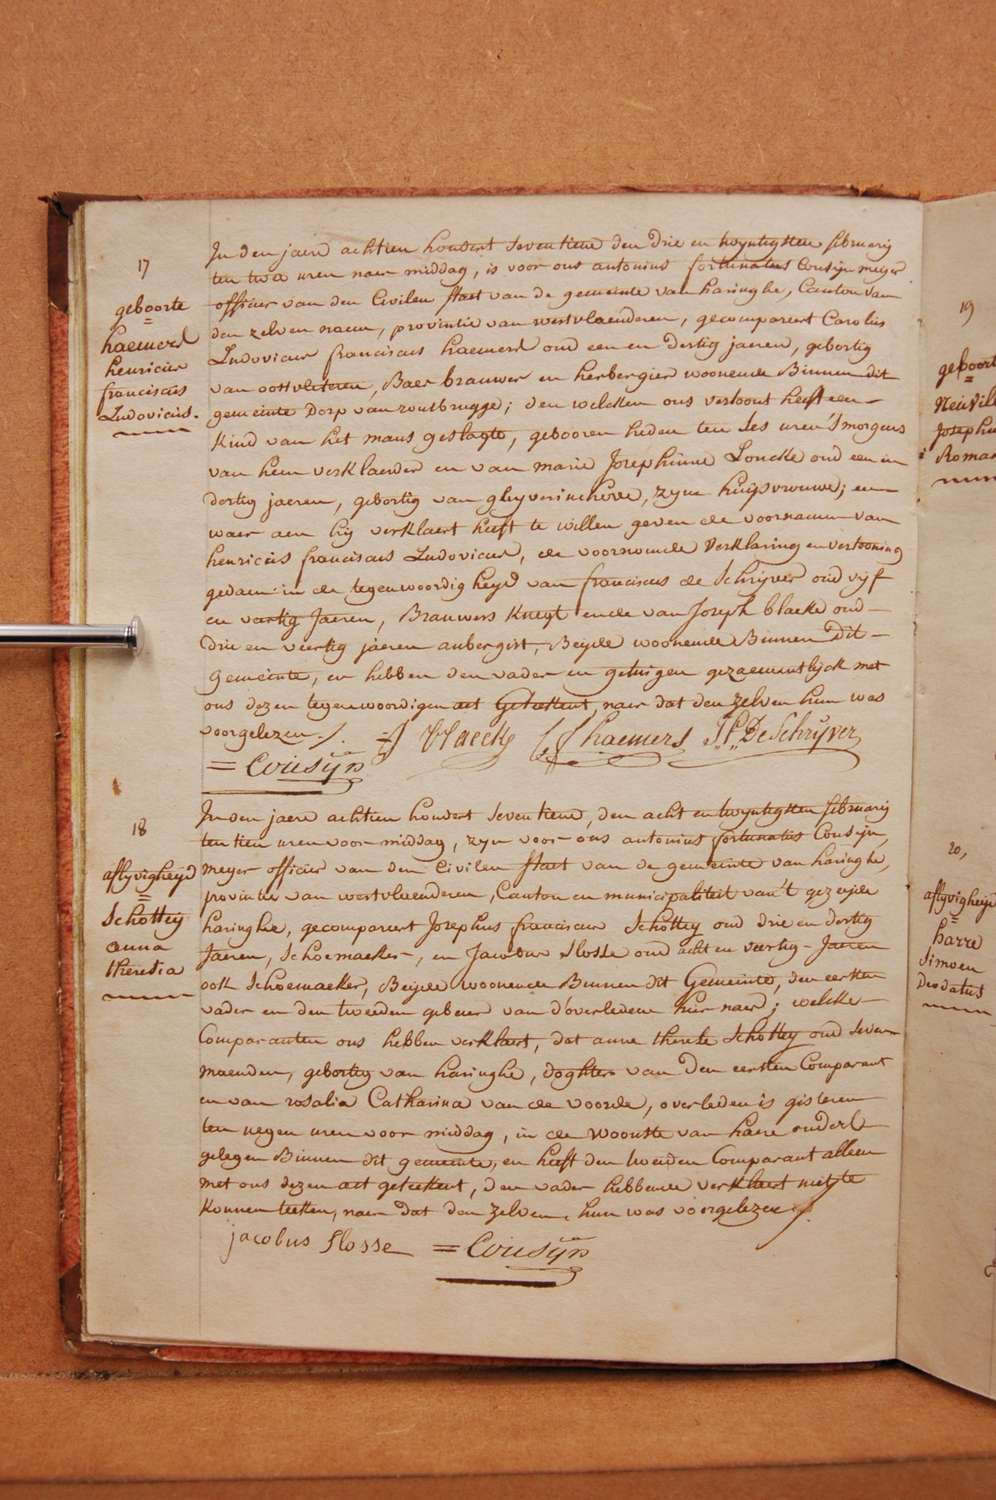 17
geboorte
haemers
henricus
franciscus
Ludovicus.
In den jaere achtien hondert seventiene den drie en twyntigsten februarij
ten twa uren naer middag, is voor ons antonius fortunatus Cousijn meyer
officier van den Civilen staet van de gemeente van haringhe, Canton van
den zelven naem, provintie van westvlaenderen, gecompareert Carolus
Ludovicus franciscus haemers oud een en dertig jaeren, gebortig
van oostvleteren, Baes brauwer en herbergier woonende Binnen dit
gemeinte Dorp van rousbrugge; den welcken ons vertoont heeft een
kind van het mans geslagte, gebooren heden ten ses uren 's morgens
van hem verklaerder en van marie Josephinne Loncke oud een en
dertig jaeren, gebortig van ghyverinchove, zyne huijsvrouwe; en
waer aen hij verklaert heeft te willen geven de voornamen van
henricus franciscus Ludovicus, de voornoemde Verklaring en vertooning
gedaen in de tegenwoordigheyd van franciscus de Schrijver oud vijf
en veertig Jaeren, Brauwers knegt ende van Joseph blaeke oud
drie en veertig jaeren aubergist, Beijde woonende Binnen Dit
gemeinte, en hebben den vader en getuigen gezaementlijck met
ons dezen tegenwoordigen act Geteekent, naer dat den zelven hun was
voorgelezen ./.
J blaecke C L f haemers f. De Schrÿver
= Cousijn
18
aflyvigheyd
Schottey
anna
theresia
In den jaere achtien hondert seventiene, den acht en twyntigsten februarij
ten tien uren voor middag, zyn voor ons antonius fortunatus Cousijn,
meyer officier van den Civilen staet van de gemeinte van haringhe,
provintie van westvlaenderen, Canton en municipaliteit van 't gezeyde
haringhe, gecompareert Josephus franciscus Schottey oud drie en dertig
Jaeren, Schoemaeker, en Jacobus Slosse oud acht en veertig Jaeren
ook Schoemaeker, Beijde woonende Binnen dit Gemeinte, den eersten
vader en den tweeden gebuer van d'overledene hier naer; welcke
Comparanten ons hebben verklaert, dat anne therese Schottey oud seven
maenden, gebortig van haringhe, doghter van Den eersten Comparent
en van rosalia Catharina van de voorde, overleden is gisteren
ten negen uren voor middag, in de Woonste van haere ouders
gelegen Binnen dit gemeente, en heeft den tweeden Comparant alleen
met ons dezen act geteekent, den vader hebbende verklaert niet te
konnen teeken, naer dat den zelven hun was voorgelezen ./.
jacobus Slosse = Cousijn
19
geboorte
Neuvill
Josephu
Roman
20,
aflyvigheyd
harre
Simoen
Deodatus